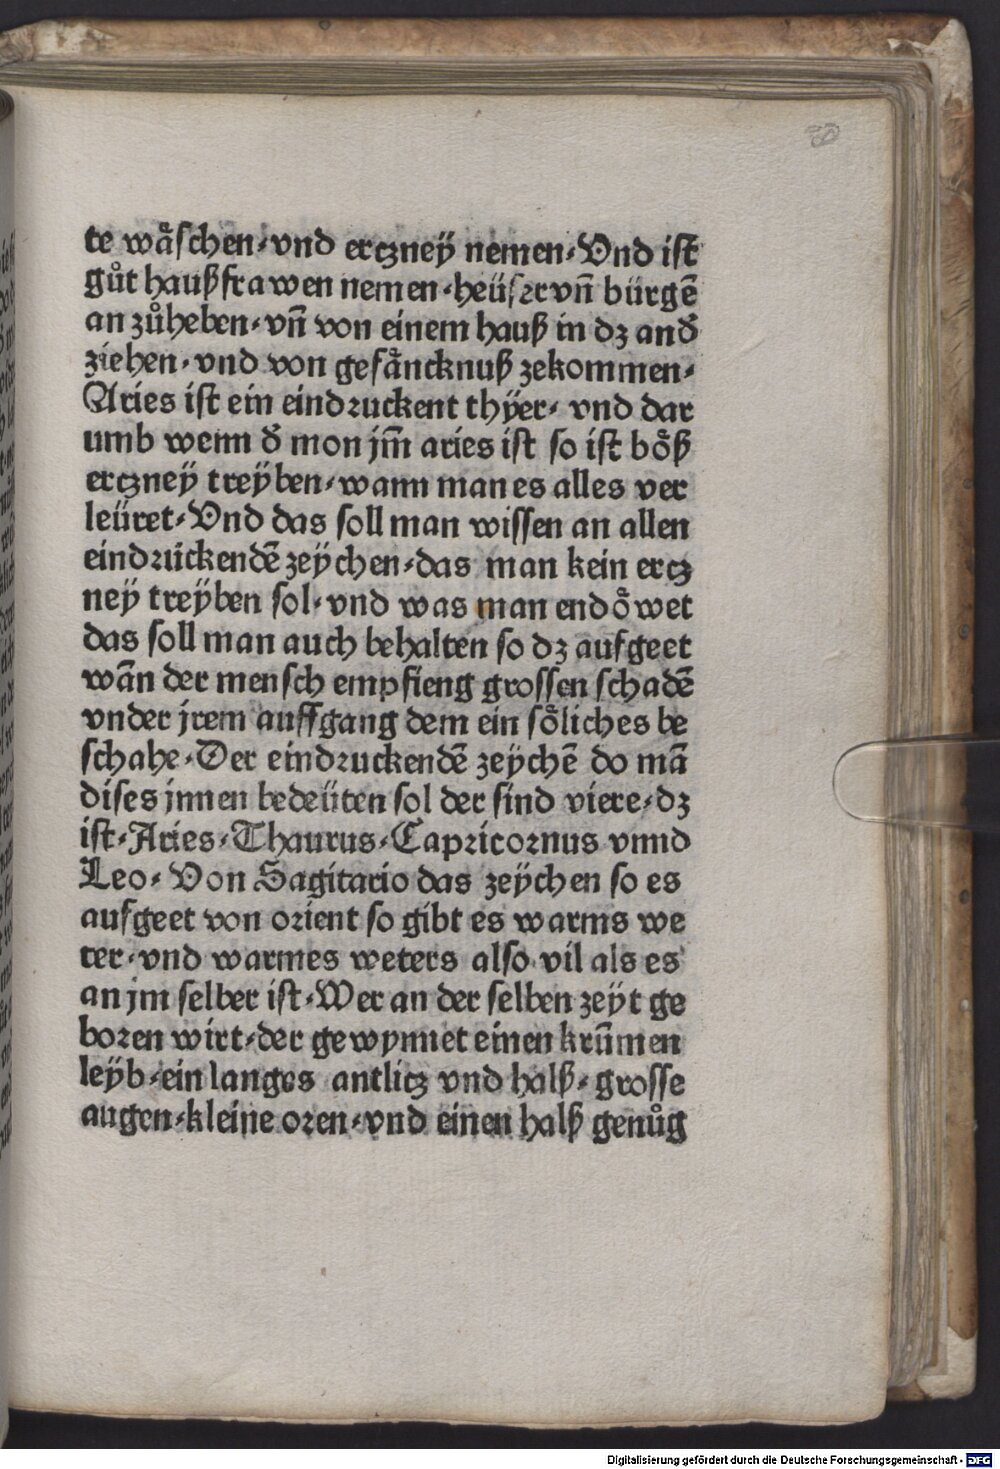 te wäſchen·vnd erczney nemen·Vnd iſt
gůt haußfrawen nemen·heüſer vñ bürgẽ
an zůheben·vñ von einem hauß in dz anď
ziehen·vnd von gefäncknuß zekommen·
Aries iſt ein eindꝛuckent thÿer·vnd dar
umb wenn ď mon jm̃ aries iſt ſo iſt böß
erczneÿ treÿben·wann man es alles ver
leüret·Vnd das ſoll man wiſſen an allen
eindꝛückendẽ zeÿchen·das man kein ercz
neÿ treÿben ſol·vnd was man endöwet
das ſoll man auch behalten ſo dz aufgeet
wãn der menſch empfieng groſſen ſchadẽ
vnder jrem auffgang dem ein ſöliches be
ſchahe·Der eindꝛuckendẽ zeÿchẽ do mã
diſes jnnen bedeüten ſol der ſind viere·dz
iſt·Aries·Thaurus·Capꝛicoꝛnus vnnd
Leo·Von Sagitario das zeÿchen ſo es
aufgeet von oꝛient ſo gibt es warms we
ter·vnd warmes weters alſo vil als es
an jm ſelber iſt·Wer an der ſelben zeÿt ge
boꝛen wirt·der gewynnet einen krũmen
leÿb·ein langes antlitz vnd halß·groſſe
augen·kleine oꝛen·vnd einen halß genůg
Digitalisierung gefördert durch die Deutsche Forschungsgemeinschaft - DFG